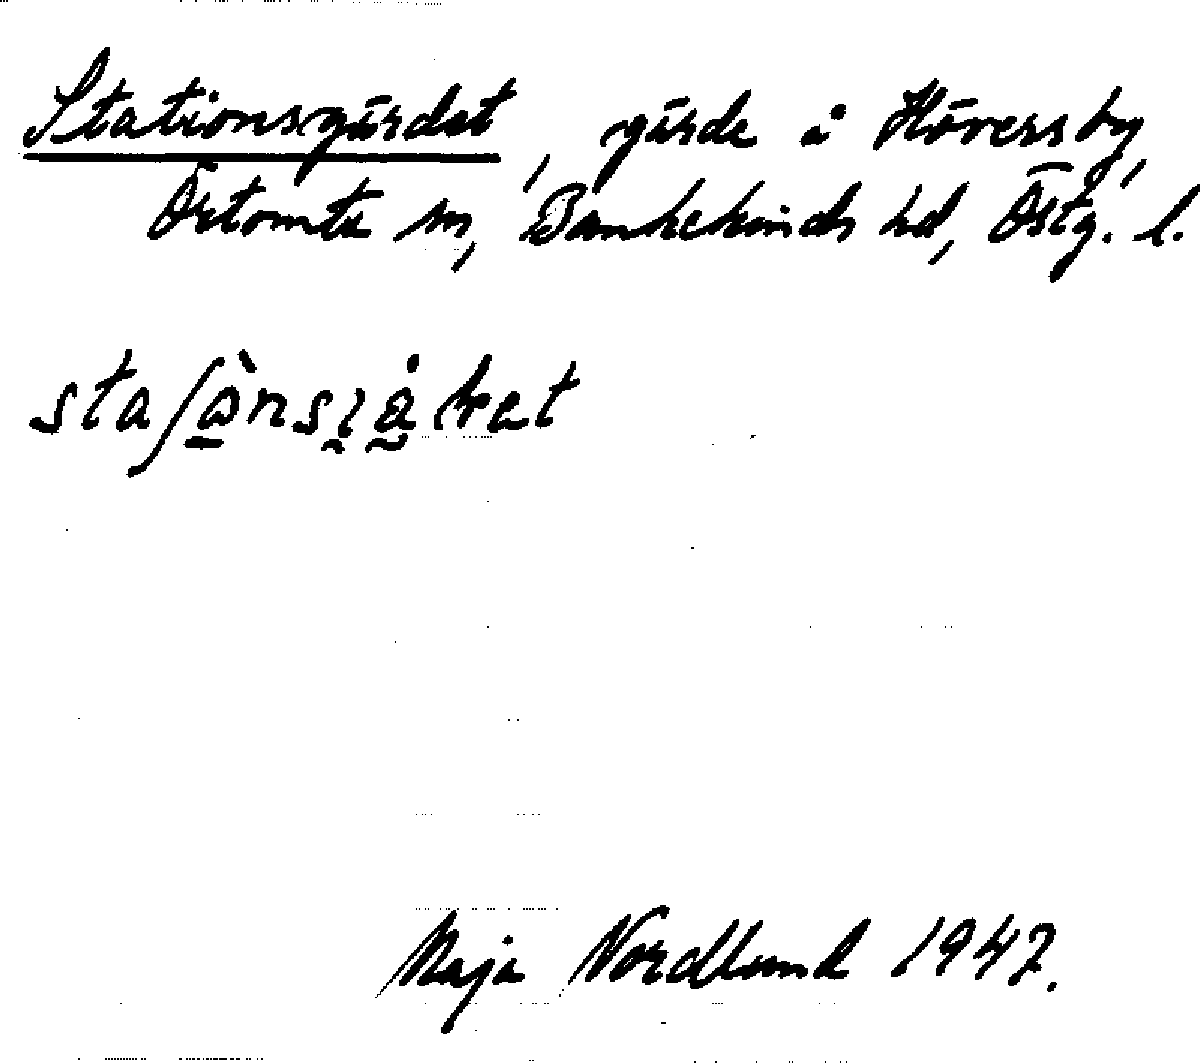 Stationsgärdet, gärde i Höversby,
Örtomta sn, Bankekinds hd, Östg. l.
Maja Nordlund 1947.